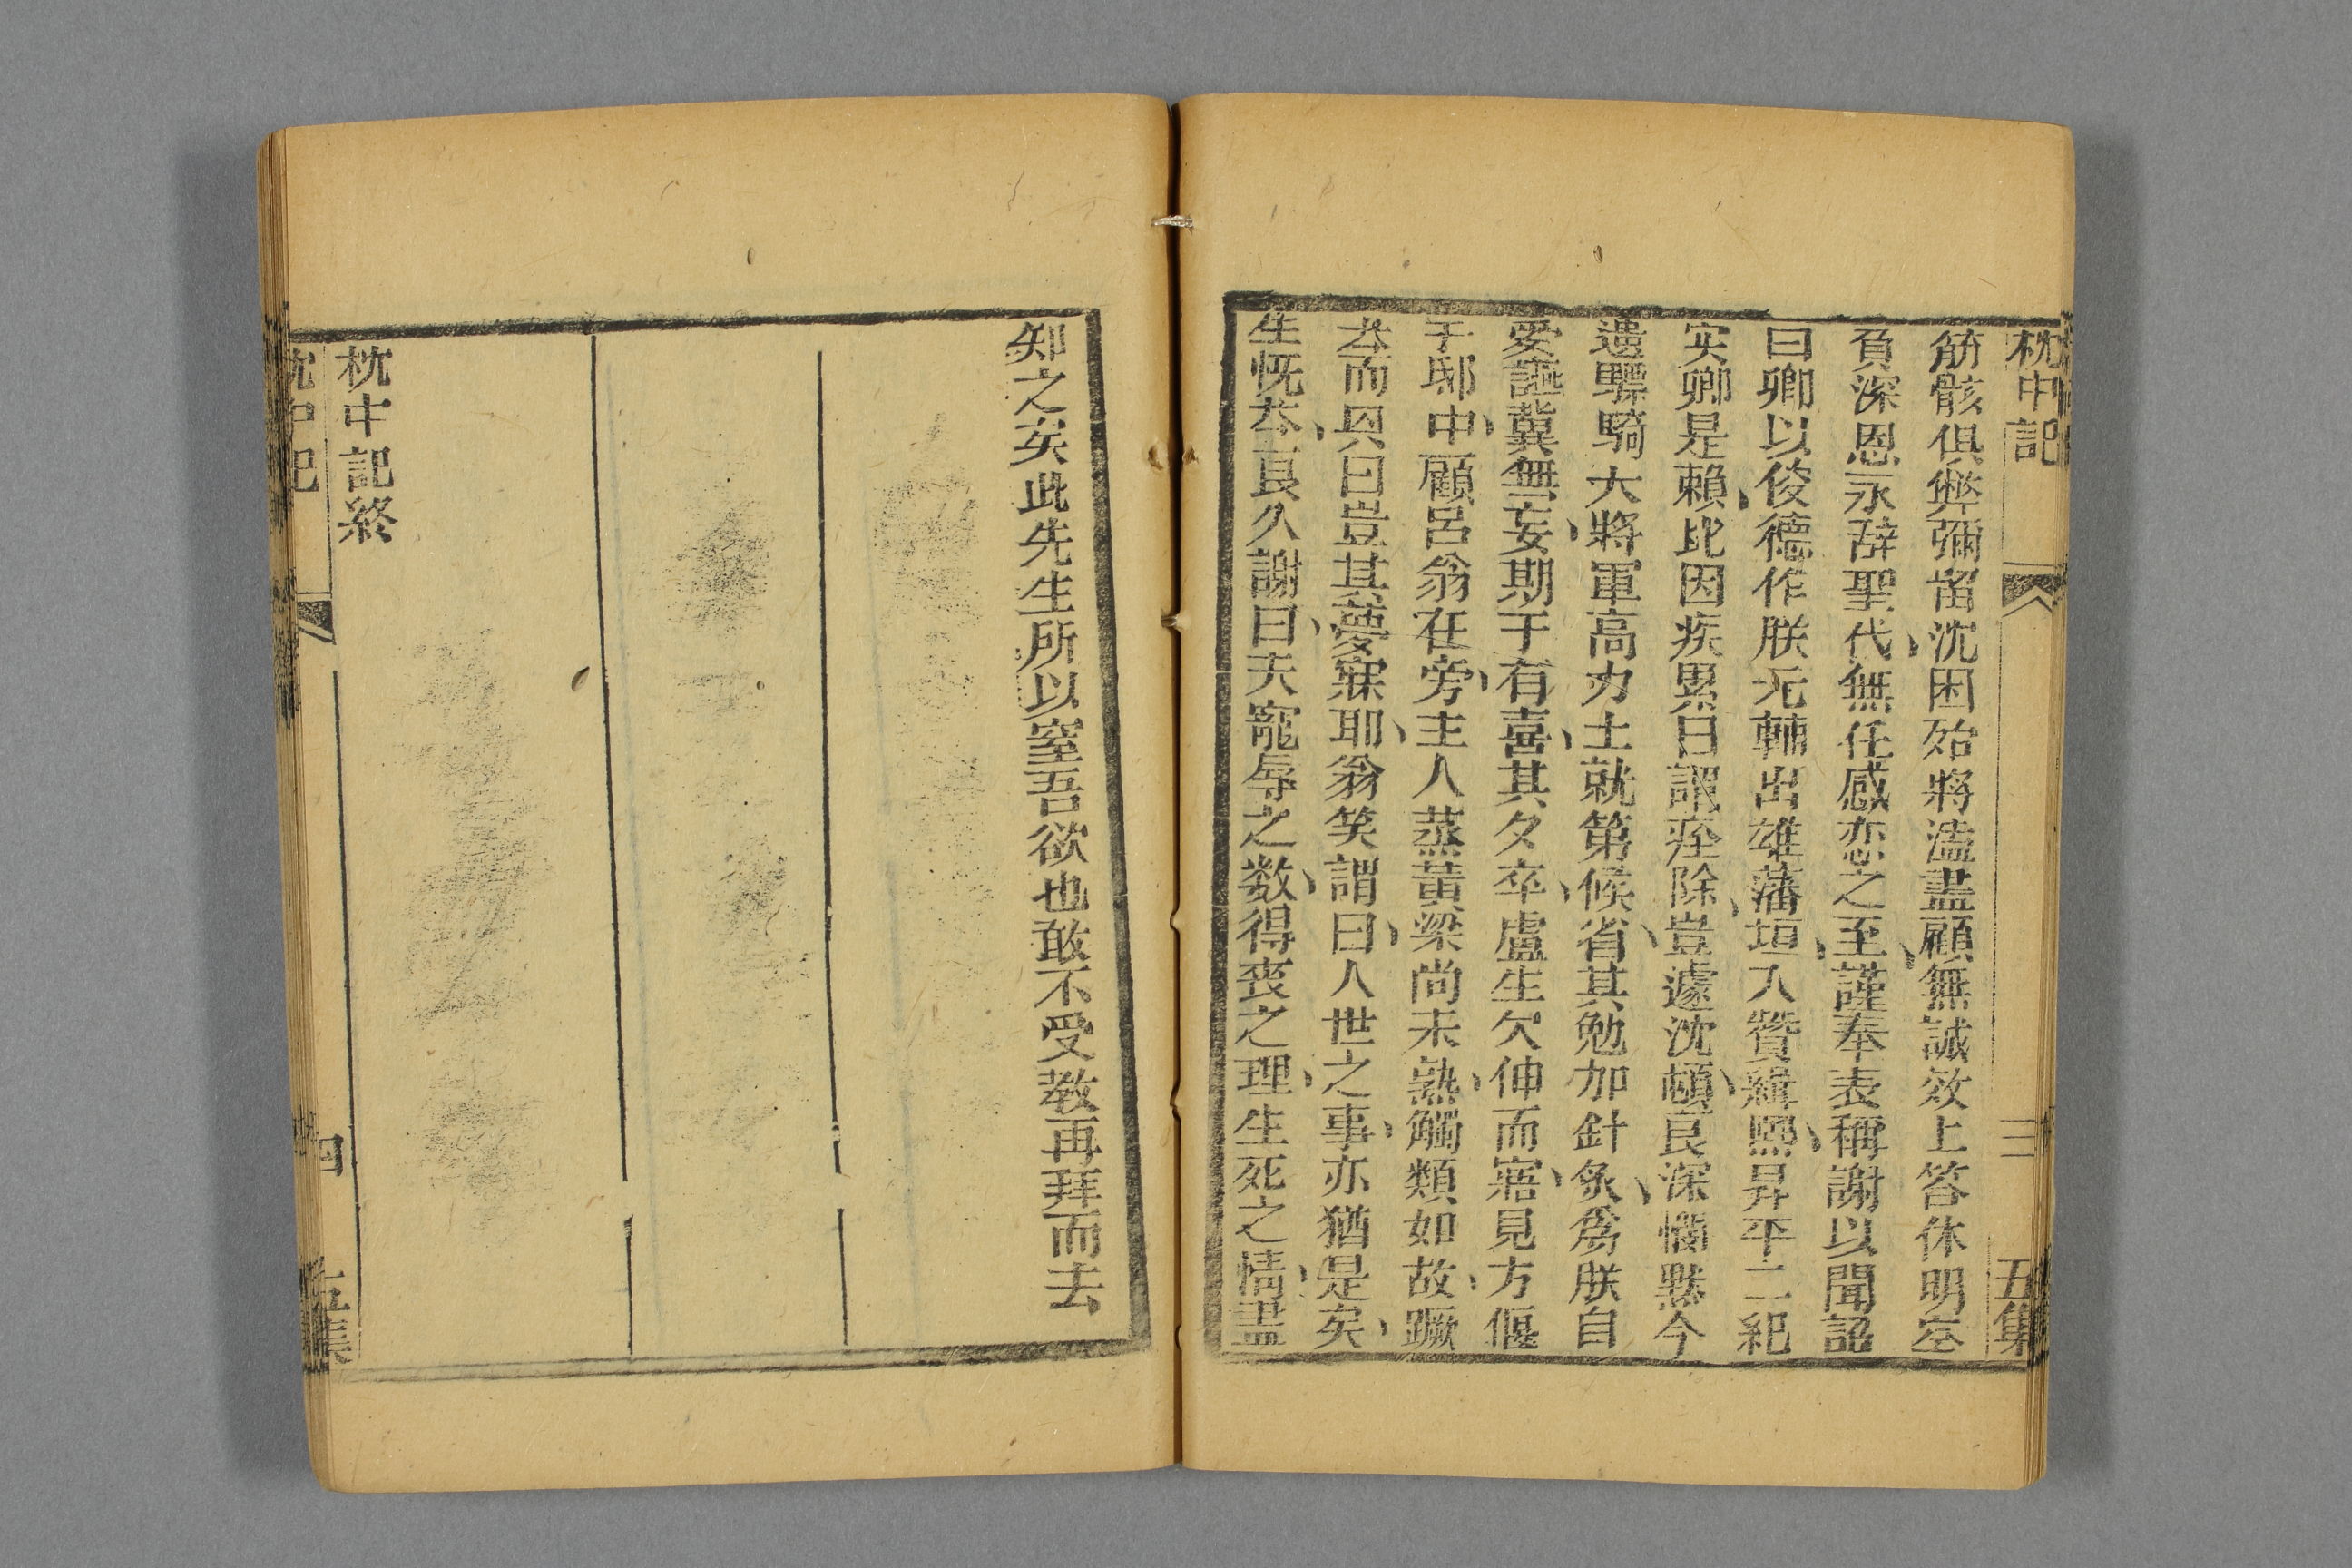 枕中記
三
五集
筋骸俱弊彌留沈困殆將溘盡顧無誠效上答休明空
負深恩永辞聖代無任感恋之至謹奉表稱謝以聞詔
曰卿以俊德作朕元輔出雄藩垣入贊緝熙昇平二紀
实卿是賴比因疾累日謂痊除豈遽沈頓良深憫默今
遣驃騎大將軍高力士就第候省其勉加針灸爲朕自
愛讌冀無妄期于有喜其夕卒盧生欠伸而寤見方偃
于邸中顧呂翁在旁主人蒸黃粱尚未熟觸類如故蹶
然而興曰豈其夢寐耶翁笑謂曰人世之事亦猶是矣
生怃然良久謝曰夫寵辱之数得丧之理生死之情盡
知之矣此先生所以窒吾欲也敢不受教再拜而去
枕中記終
枕中記
四
五集